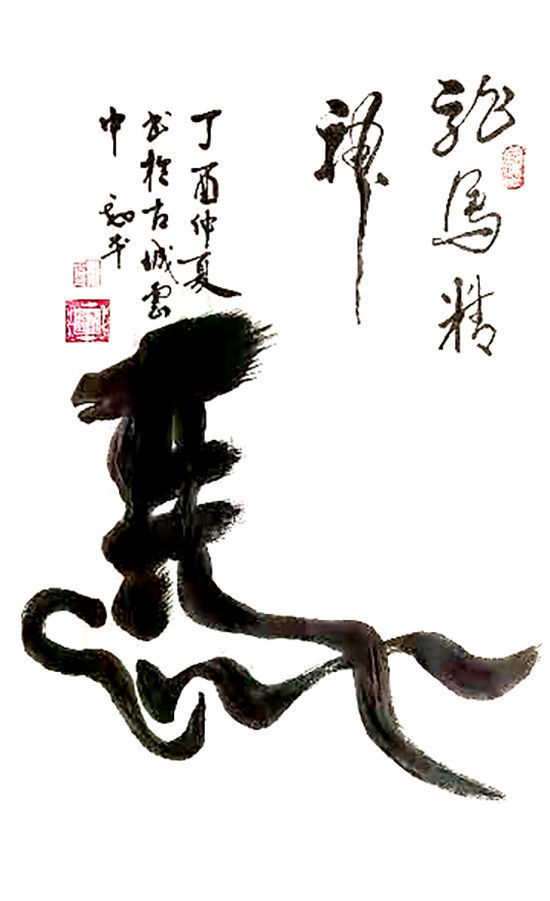 龍馬精
神
丁酉仲夏
书於古城雲
中
馬